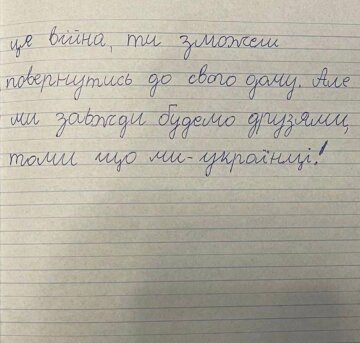 це війна, ти зможеш
повернутись до свого дому. Але
ми завжди будемо друзями,
тому що ми - українці!